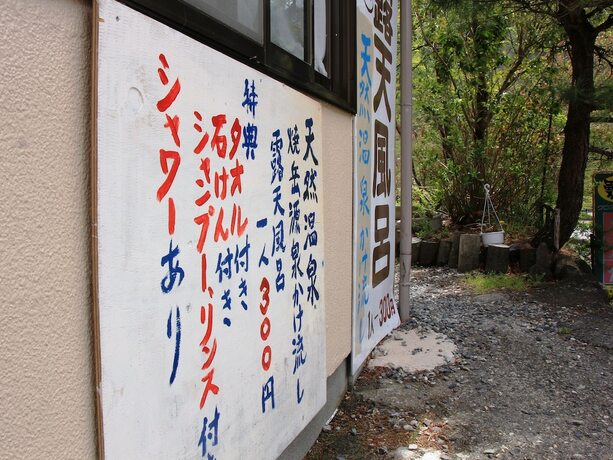 天然温泉
焼岳源泉かけ流し
露天風呂
一人300円
特典
タオル付き
石けん付き、
シャンプー、リンス付
シャワーあり
露天風呂
天然温泉かけ流し
1人一300円